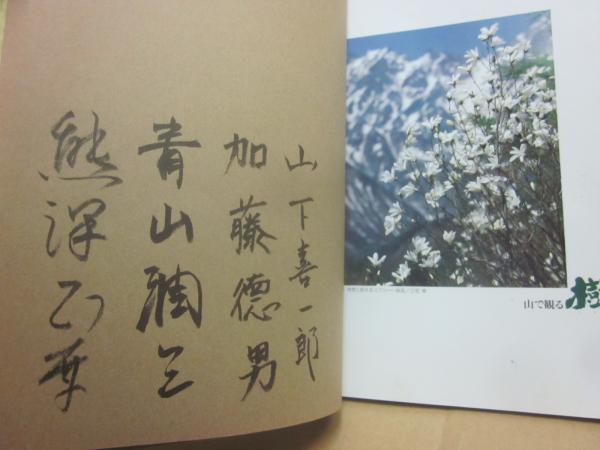 山下喜一郎
加藤德男
青山潤三
熊澤正夫
山で観る